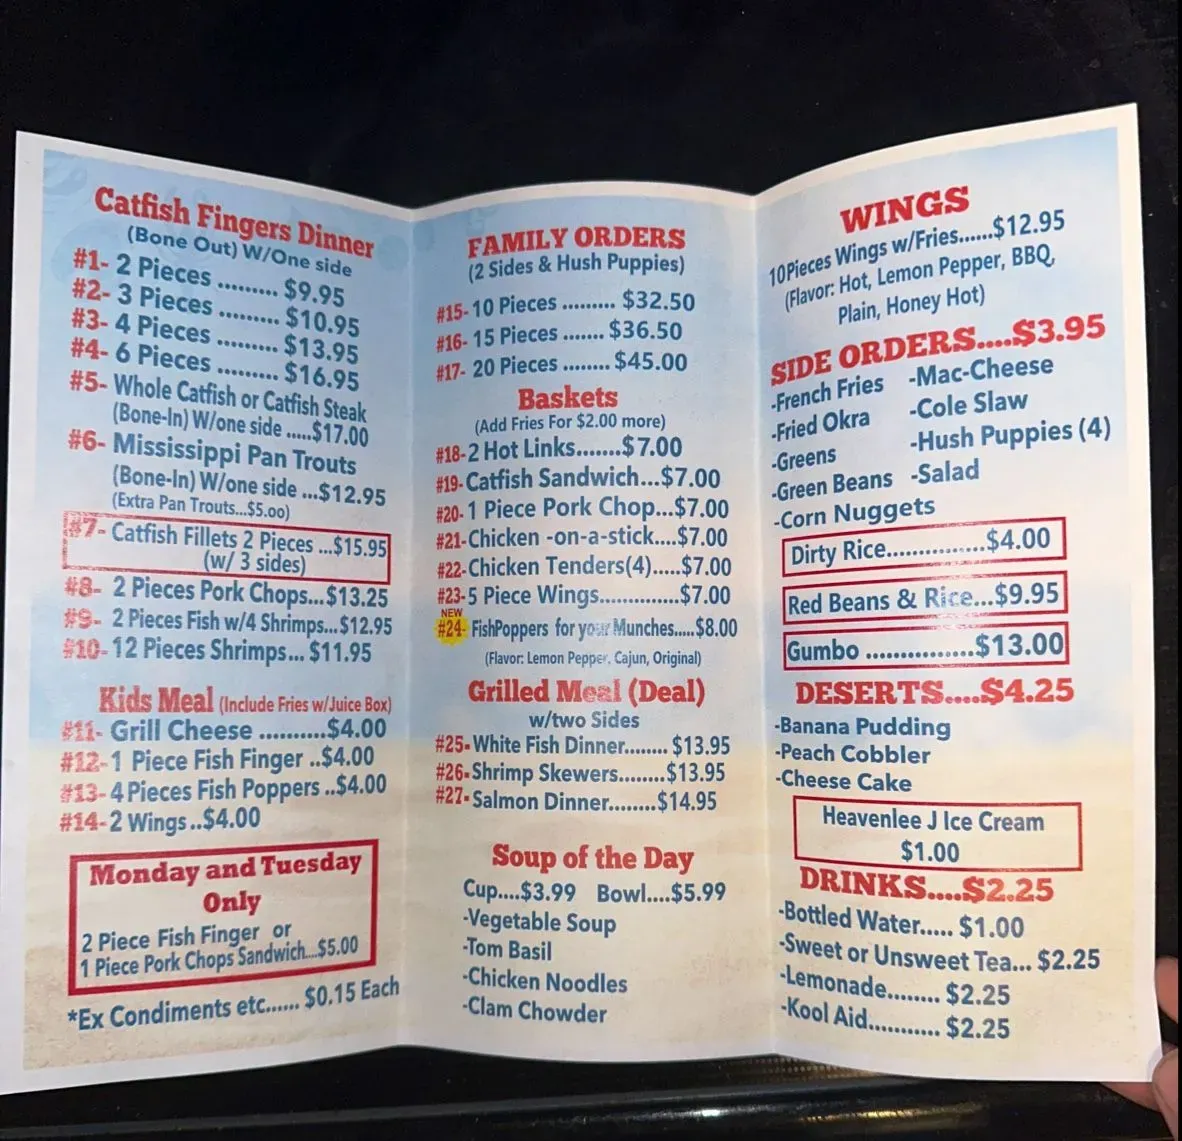 Catfish Fingers Dinner
(Bone Out) W/One side
#1- 2 Pieces ......... $9.95
#2- 3 Pieces ......... $10.95
#3- 4 Pieces ......... $13.95
#4- 6 Pieces ......... $16.95
#5- Whole Catfish or Catfish Steak
(Bone-In) W/one side .....$17.00
#6- Mississippi Pan Trouts
(Bone-In) W/one side ...$12.95
(Extra Pan Trouts...$5.00)
#7- Catfish Fillets 2 Pieces ...$15.95
(w/ 3 sides)
#8- 2 Pieces Pork Chops...$13.25
#9- 2 Pieces Fish w/4 Shrimps...$12.95
#10- 12 Pieces Shrimps... $11.95
Kids Meal (Include Fries w/Juice Box)
#11- Grill Cheese ..........$4.00
#12- 1 Piece Fish Finger ..$4.00
#13- 4 Pieces Fish Poppers ..$4.00
#14- 2 Wings ..$4.00
Monday and Tuesday
Only
2 Piece Fish Finger or
1 Piece Pork Chops Sandwich...$5.00
*Ex Condiments etc...... $0.15 Each
FAMILY ORDERS
(2 Sides & Hush Puppies)
#15- 10 Pieces ......... $32.50
#16- 15 Pieces ....... $36.50
#17- 20 Pieces ........ $45.00
Baskets
(Add Fries For $2.00 more)
#18- 2 Hot Links.......$7.00
#19- Catfish Sandwich...$7.00
#20- 1 Piece Pork Chop...$7.00
#21- Chicken -on-a-stick....$7.00
#22- Chicken Tenders(4).....$7.00
#23- 5 Piece Wings..............$7.00
NEW
#24- FishPoppers for your Munches.....$8.00
(Flavor: Lemon Pepper, Cajun, Original)
Grilled Meal (Deal)
w/two Sides
#25- White Fish Dinner........ $13.95
#26- Shrimp Skewers........$13.95
#27- Salmon Dinner........$14.95
Soup of the Day
Cup....$3.99 Bowl....$5.99
-Vegetable Soup
-Tom Basil
-Chicken Noodles
-Clam Chowder
WINGS
10Pieces Wings w/Fries......$12.95
(Flavor: Hot, Lemon Pepper, BBQ,
Plain, Honey Hot)
SIDE ORDERS....$3.95
-French Fries -Mac-Cheese
-Fried Okra -Cole Slaw
-Greens -Hush Puppies (4)
-Green Beans -Salad
-Corn Nuggets
Dirty Rice...............$4.00
Red Beans & Rice...$9.95
Gumbo ................$13.00
DESERTS....$4.25
-Banana Pudding
-Peach Cobbler
-Cheese Cake
Heavenlee J Ice Cream
$1.00
DRINKS....$2.25
-Bottled Water..... $1.00
-Sweet or Unsweet Tea... $2.25
-Lemonade........ $2.25
-Kool Aid........... $2.25